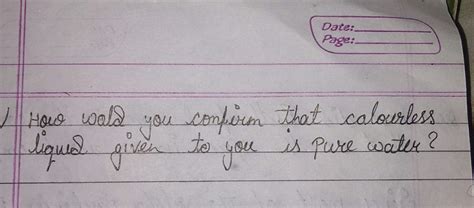 Date:
Page:
How wald you confirm that calourless
liquid given to you is pure water?